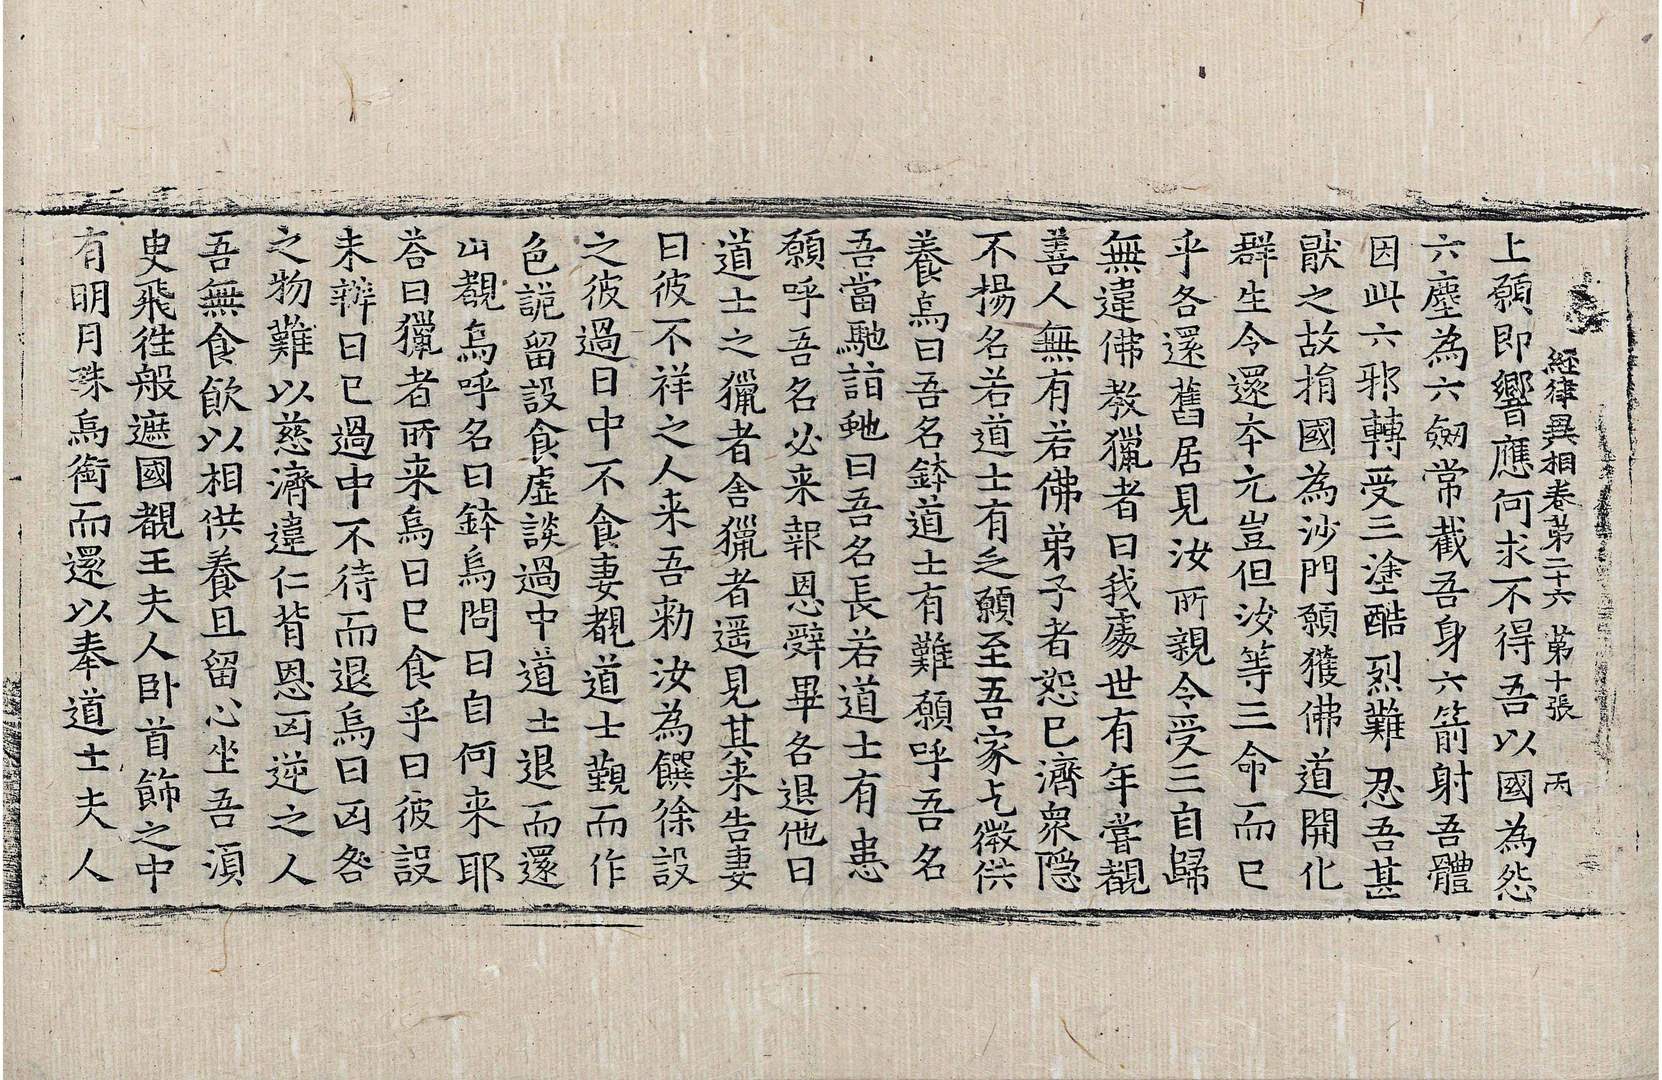 經律異相卷第二十六 第十張 丙
上願即響應何求不得吾以國為怨
六塵為六劒常截吾身六箭射吾體
因此六邪轉受三塗酷烈難忍吾甚
猒之故捐國為沙門願獲佛道開化
群生令還夲元豈但汝等三命而已
乎各還舊居見汝所親令受三自歸
無違佛教獵者曰我處世有年甞覩
善人無有若佛弟子者恕己濟衆隱
不揚名若道士有乏願至吾家乞徵供
養烏曰吾名鉢道士有難願呼吾名
吾當馳詣虵曰吾名長若道士有患
願呼吾名必来報恩辭畢各退他日
道士之獵者舍獵者遥見其来告妻
曰彼不祥之人来吾勑汝為饌徐設
之彼過日中不食妻覩道士覲而作
色詭留設食虚談過中道士退而還
山覩烏呼名曰鉢烏問曰自何来耶
荅曰獵者所来烏曰已食乎曰彼設
未辦日已過中不待而退烏曰凶咎
之物難以慈濟違仁背恩凶逆之人
吾無食飲以相供養且留心坐吾湏
臾飛徃般遮國覩王夫人卧首飾之中
有明月珠烏銜而還以奉道士夫人